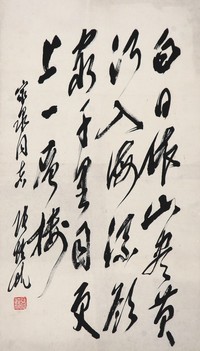 白日依山尽黄
河入海流欲
穷千里目更
上一层楼
同志